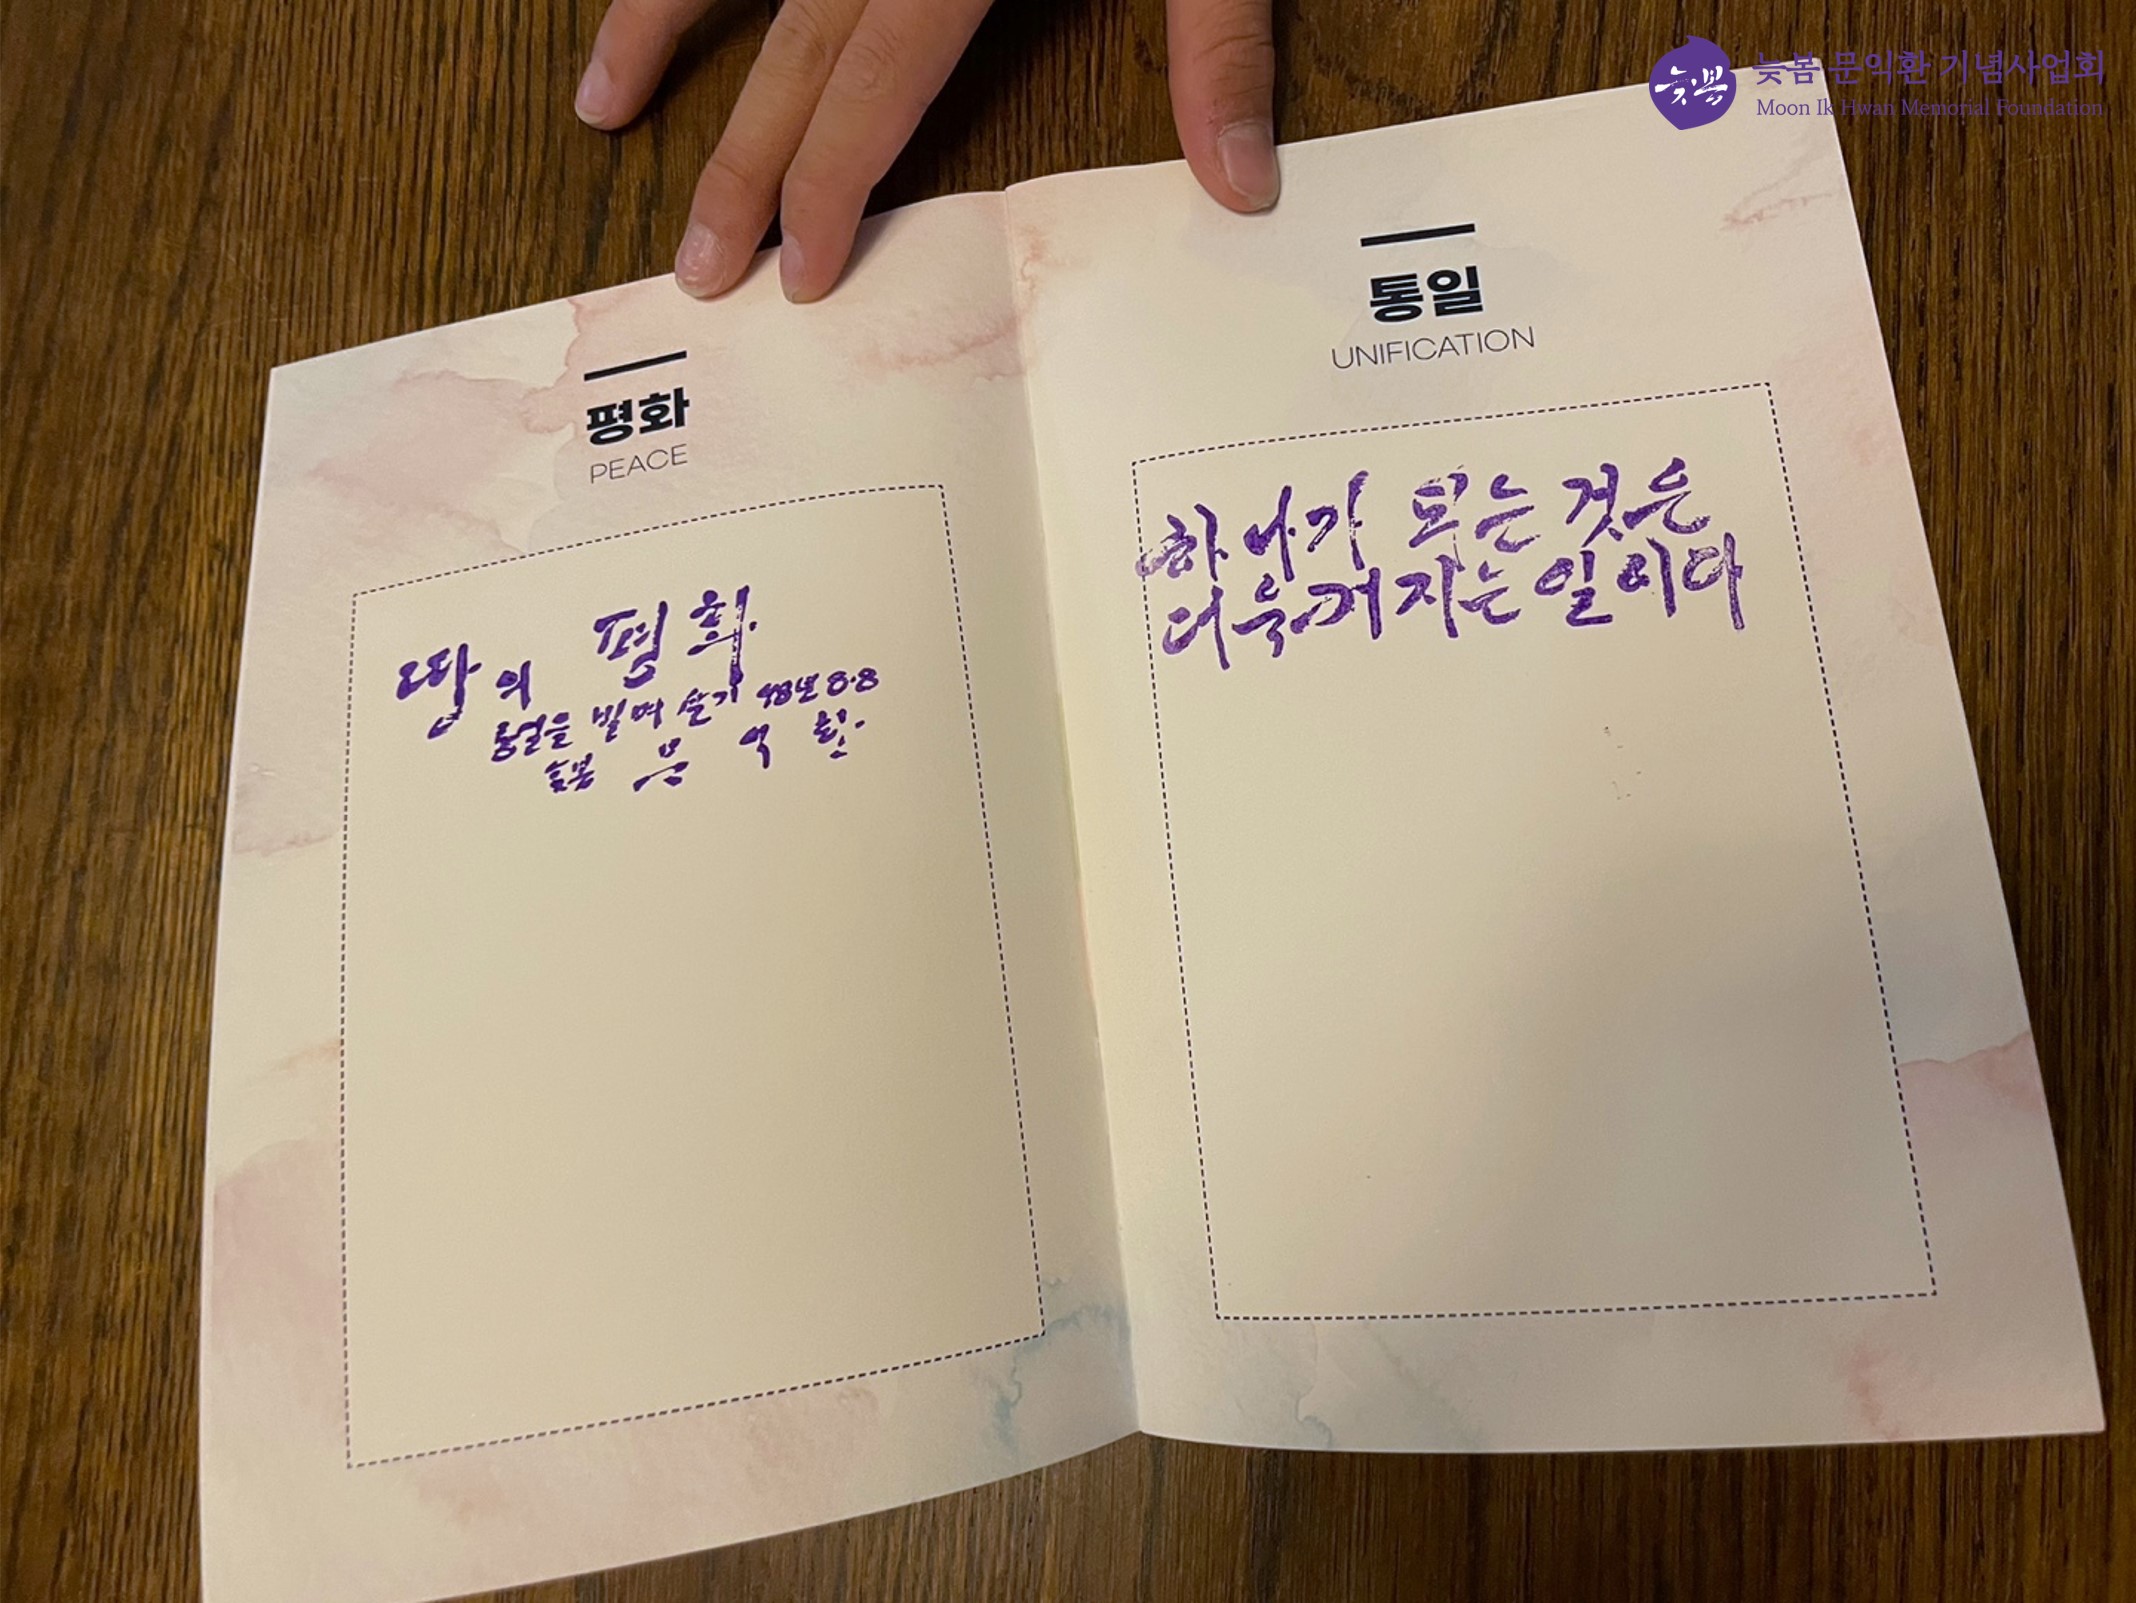 늦봄 문익환 기념사업회
Moon Ik Hwan Memorial Foundation
늦봄
평화
PEACE
땅의 평화
통일을 빌며 슬기 48년 8.8
늦봄 문익환
통일
UNIFICATION
하나가 되는 것은
더욱 커지는 일이다